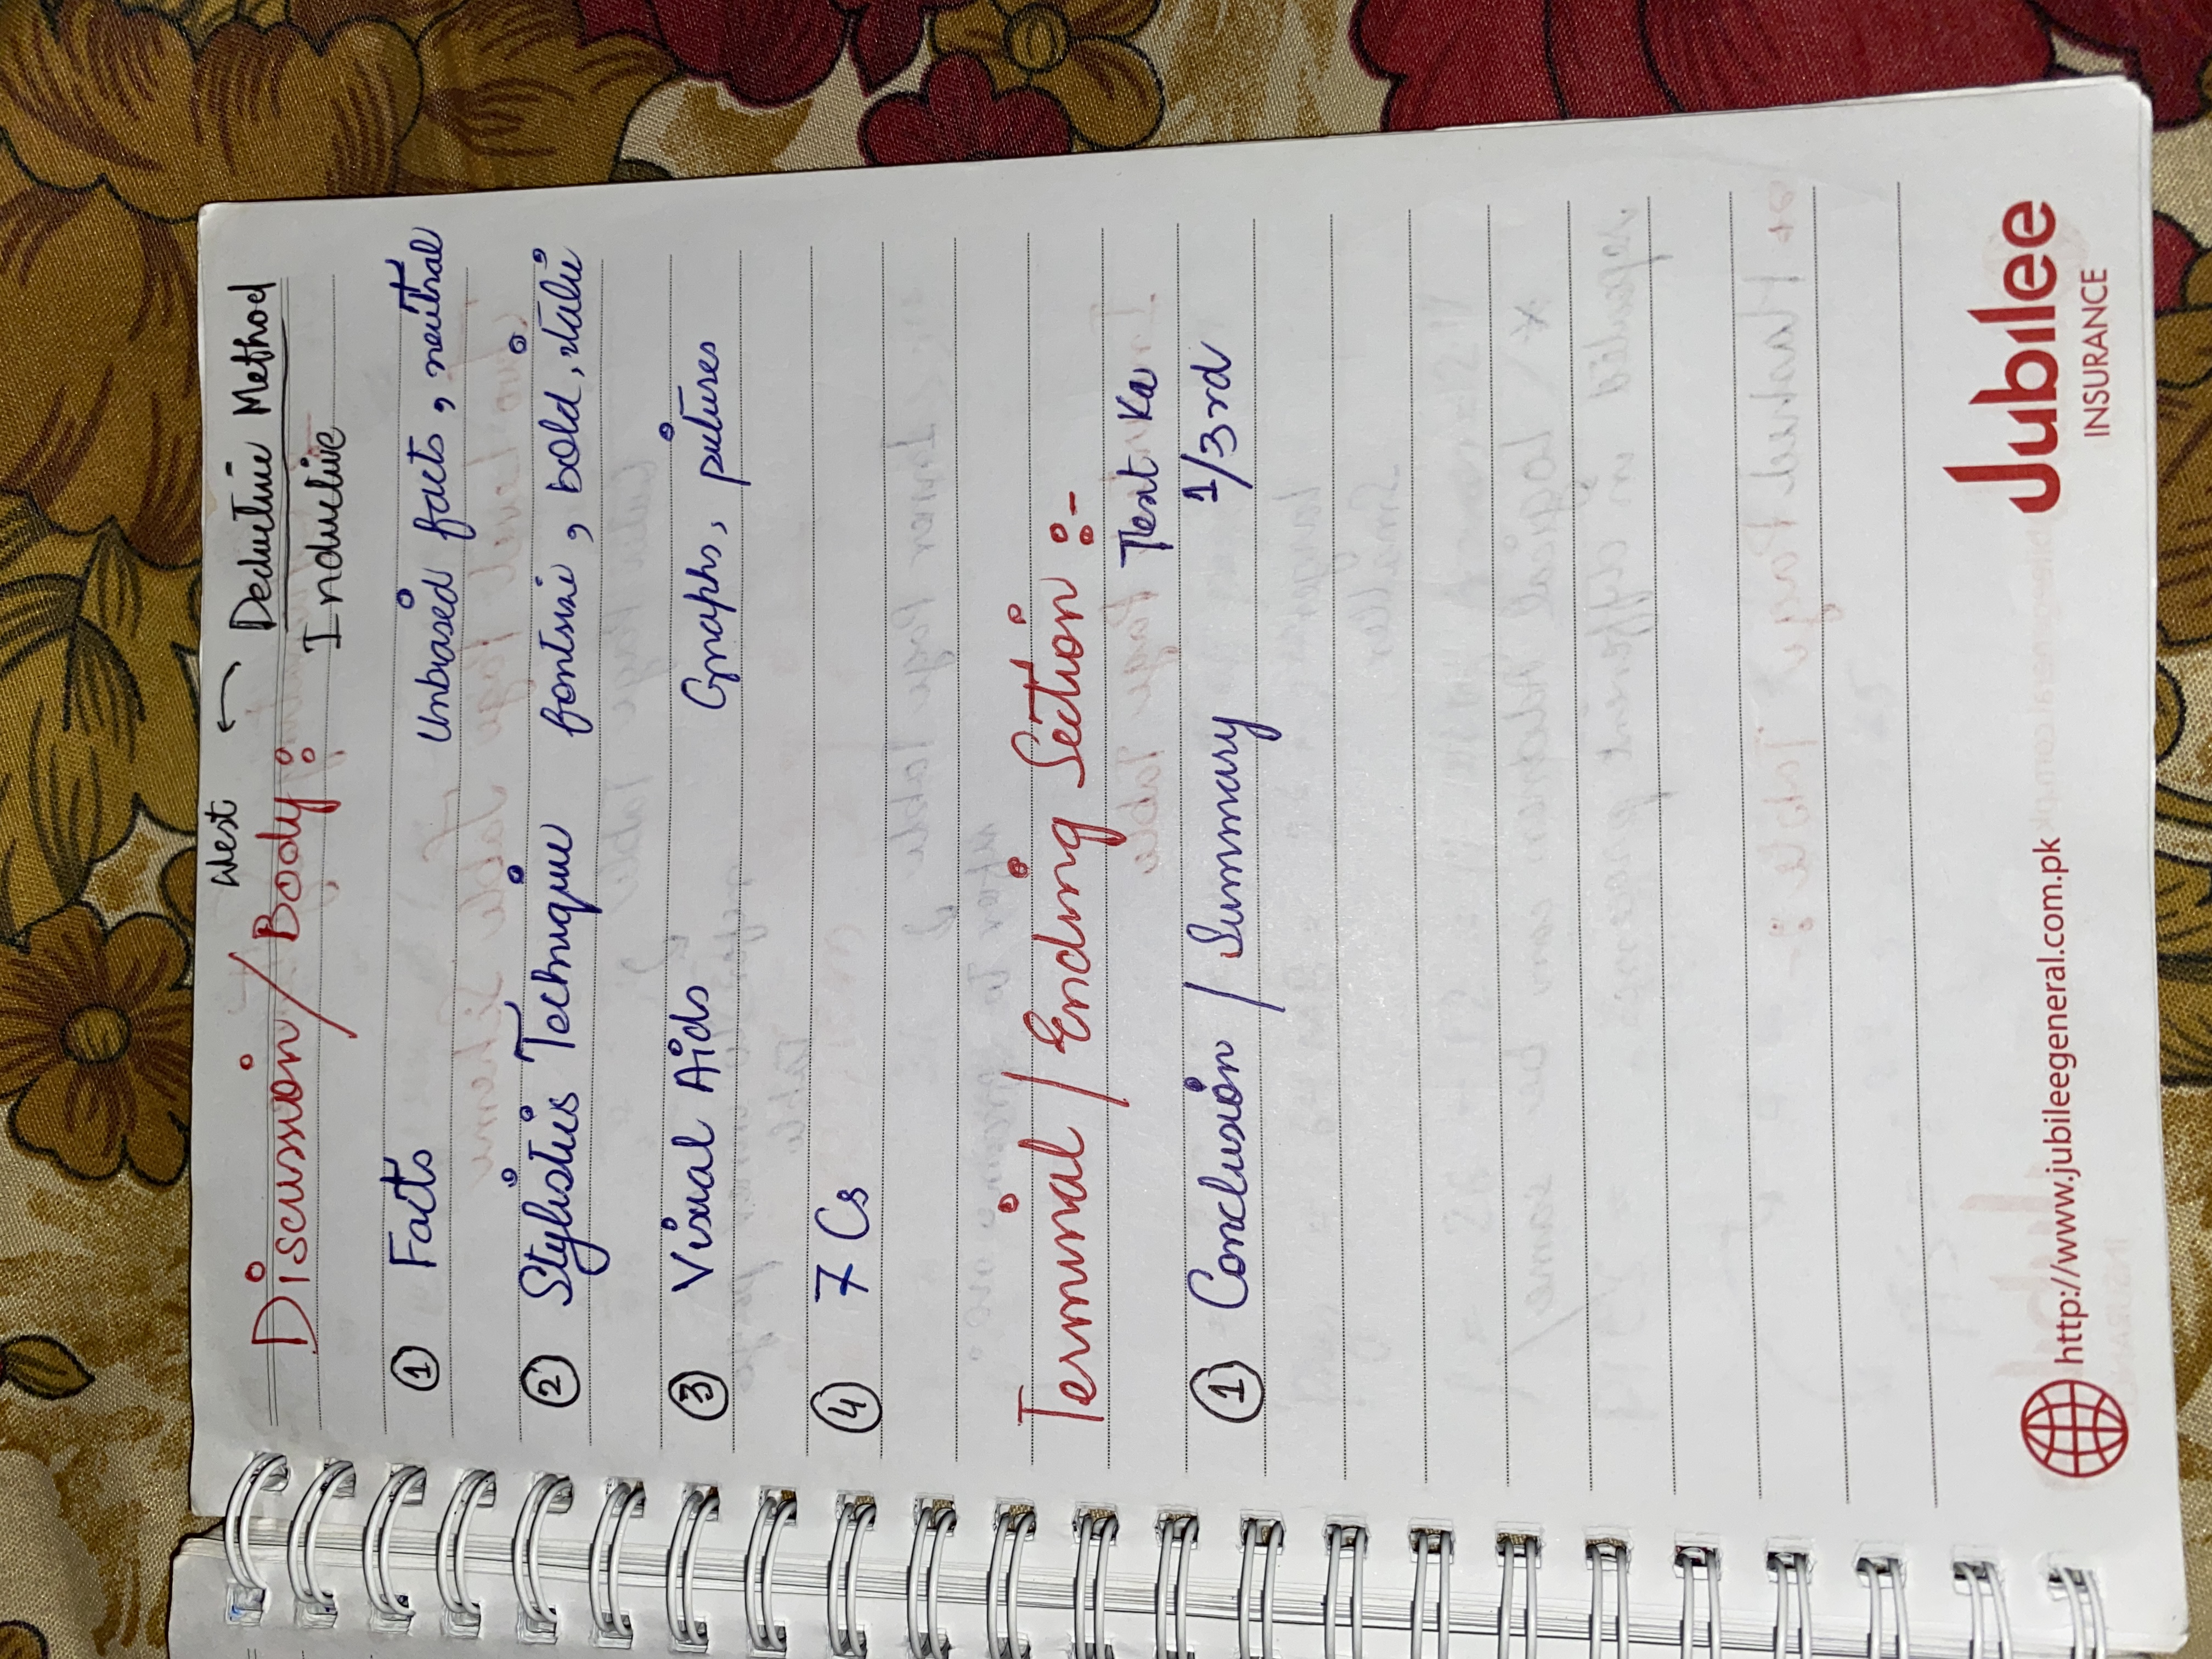 West ← Deductive Method
Discussion / Body :
Inductive
① Facts Unbiased facts, neutral
② Stylistics Technique fontsize, bold, italic
③ Visual Aids Graphs, pictures
④ 7 Cs
Terminal / Ending Section :-
Text Ka
① Conclusion / Summary 1/3rd
http://www.jubileegeneral.com.pk
Jubilee
INSURANCE